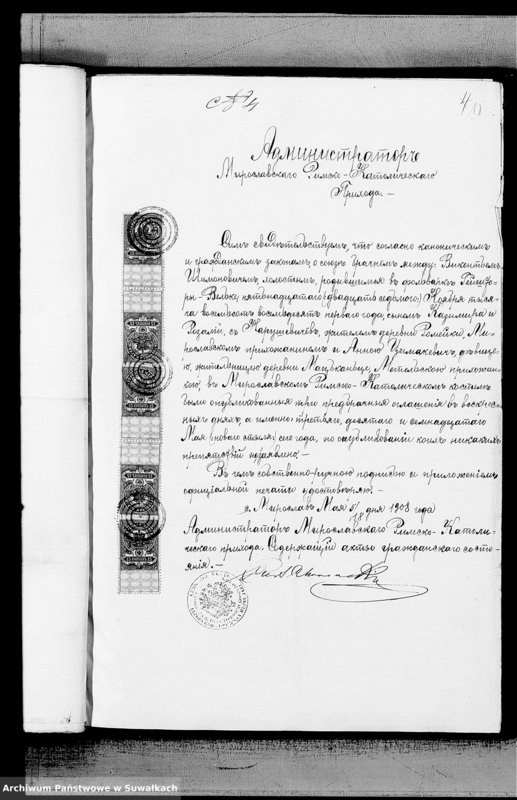 4
Администраторъ
Мирославскаго Римско-Католическаго
Прихода.—
Симъ свидѣтельствуемъ, что согласно каноническимъ
и гражданскимъ законамъ о союзѣ брачномъ между: Викентіемъ
Шимоновичемъ, холостымъ, родившимся въ фольваркѣ
Вельке, пятнадцатаго (двадцать седьмого) Ноября тыся-
ча восемьсотъ восемьдесятъ перваго года, сыномъ Казимира и
Розаліи, съ Карушевичевъ, жителемъ деревни Ромейки, Ми-
рославскимъ прихожаниномъ и Анною дѣвице-
ю, жительницею деревни Мацкванце, Метельскою прихожан-
кою, въ Мирославскомъ Римско-Католическомъ костелѣ
были опубликованныя три предбрачныя оглашенія въ воскрес-
ныхъ дняхъ, а именно: третьяго, десятаго и семнадцатаго
Мая (новаго стиля) сего года, по опубликованіи коихъ никакихъ
препятствій не заявлено.—
Въ чемъ собственно-ручною подписью и приложеніемъ
официальной печати удостовѣряю.—
г. Мирославъ Мая 5/18 дня 1908 года
Администраторъ Мирославскаго Римско-Католи-
ческаго прихода. Содержащій акты гражданскаго состо-
янія.—
Archiwum Państwowe w Suwałkach